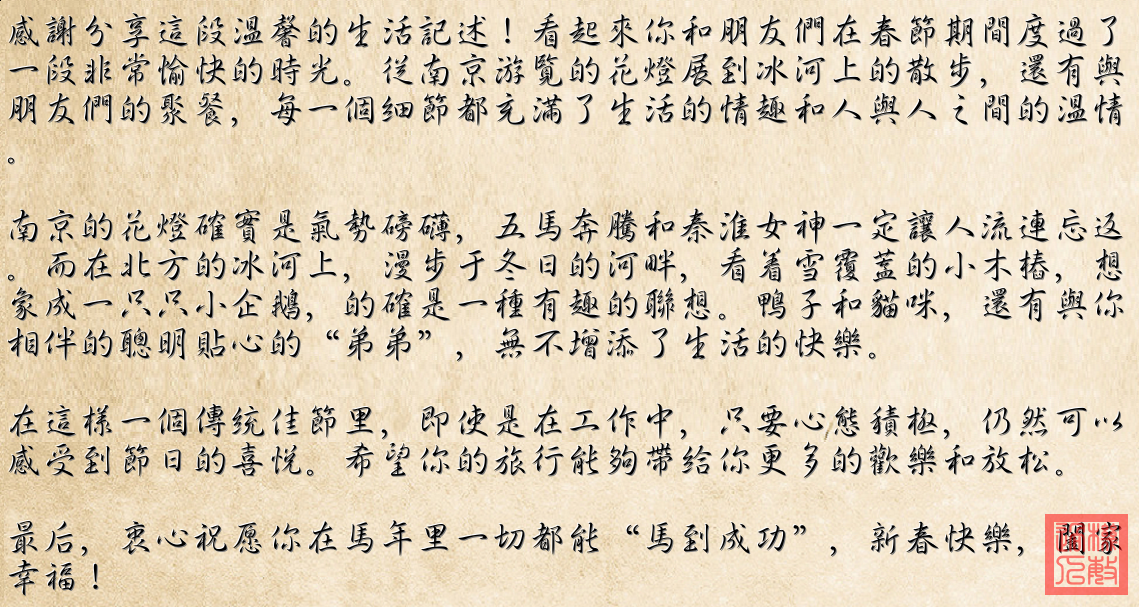 感謝分享這段溫馨的生活記述！看起來你和朋友們在春節期間度過了
一段非常愉快的時光。從南京游覽的花燈展到冰河上的散步，還有與
朋友們的聚餐，每一個細節都充滿了生活的情趣和人與人之間的溫情
。
南京的花燈確實是氣勢磅礴，五馬奔騰和秦淮女神一定讓人流連忘返
。而在北方的冰河上，漫步于冬日的河畔，看着雪覆蓋的小木樁，想
象成一只只小企鵝，的確是一種有趣的聯想。鴨子和貓咪，還有與你
相伴的聰明貼心的“弟弟”，無不增添了生活的快樂。
在這樣一個傳統佳節里，即使是在工作中，只要心態積極，仍然可以
感受到節日的喜悅。希望你的旅行能夠帶給你更多的歡樂和放松。
最后，衷心祝愿你在馬年里一切都能“馬到成功”，新春快樂，闔家
幸福！